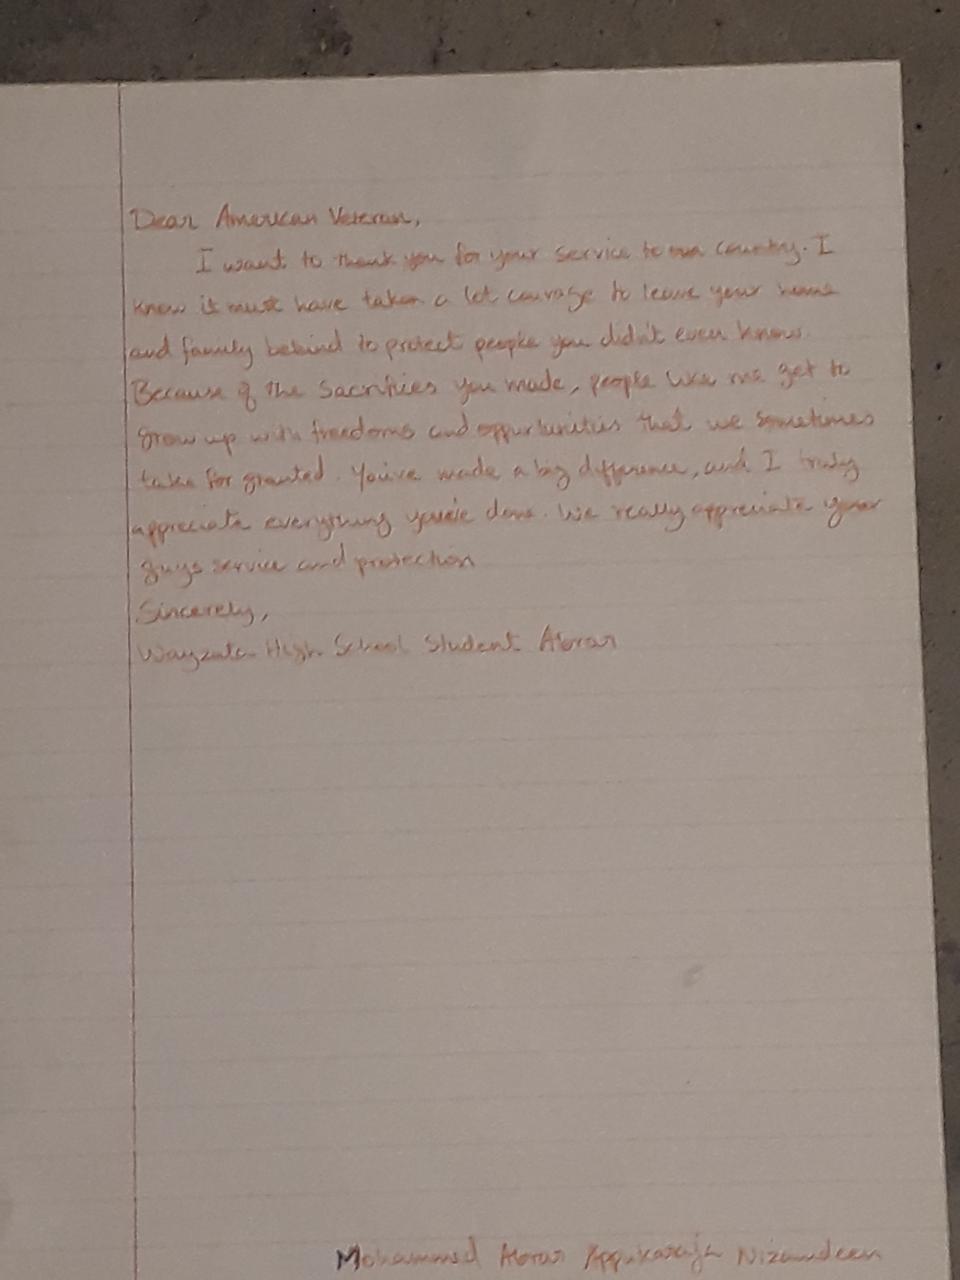 Dear American Veteran,
I want to thank you for your service to our country. I
know it must have taken a lot courage to leave your home
and family behind to protect people you didn't even know.
Because of the sacrifices you made, people like me get to
grow up with freedoms and oppurtunities that we sometimes
take for granted. You've made a big difference, and I truly
appreciate everything you've done. We really appreciate your
guys service and protection
Sincerely,
Wayzata High School Student Abrar
Mohammed Abrar Appukaraja Nizamdeen